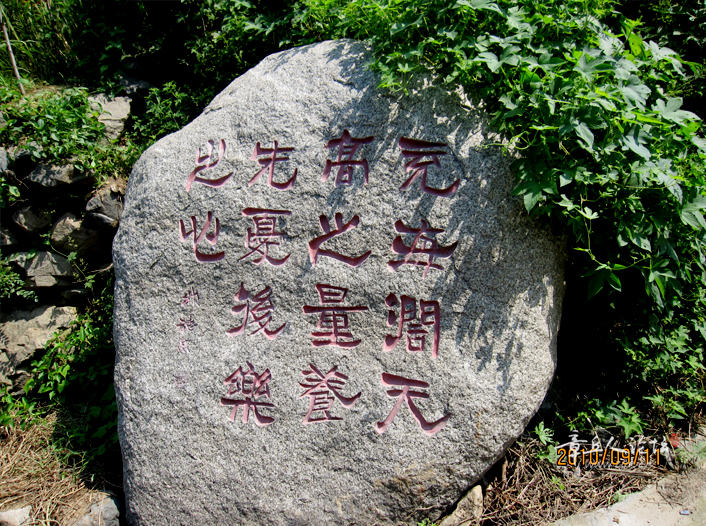 充海濶天
高之量養
先憂後樂
之心
2010/09/11